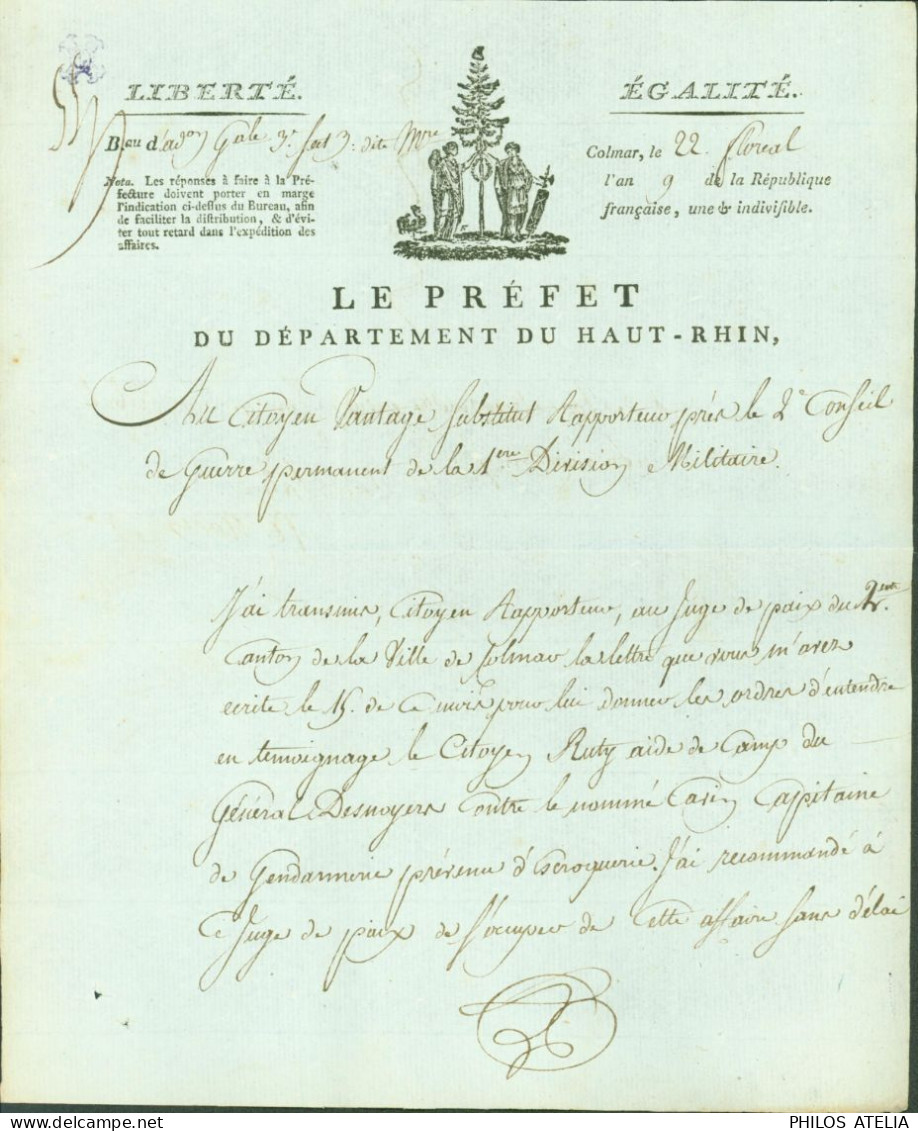 LIBERTÉ.
ÉGALITÉ.
B.eau d'ad.on Gale 3.e
Nota. Les réponses à faire à la Pré-
fecture doivent porter en marge
l'indication ci-deſſus du Bureau, afin
de faciliter la diſtribution, & d'évi-
ter tout retard dans l'expédition des
affaires.
Colmar, le 22 floreal
l'an 9 de la République
françaiſe, une & indiviſible.
LE PRÉFET
DU DÉPARTEMENT DU HAUT-RHIN,
Au Citoyen Pantage Substitut Rapporteur près le 2e Conseil
de Guerre permanent de la 1ere Division Militaire.
J'ai transmis, Citoyen Rapporteur, au Juge de paix du 2.me
Canton de la Ville de Colmar la lettre que vous m'avez
ecrite le 15. de ce mois pour lui donner les ordres d'entendre
en temoignage le Citoyen Ruty aide de Camp du
Général Desnoyers contre le nommé Carin Capitaine
de Gendarmerie prévenu d'Escroquerie. J'ai recommandé à
ce Juge de paix de s'occuper de cette affaire sans délai
PHILOS ATELIA